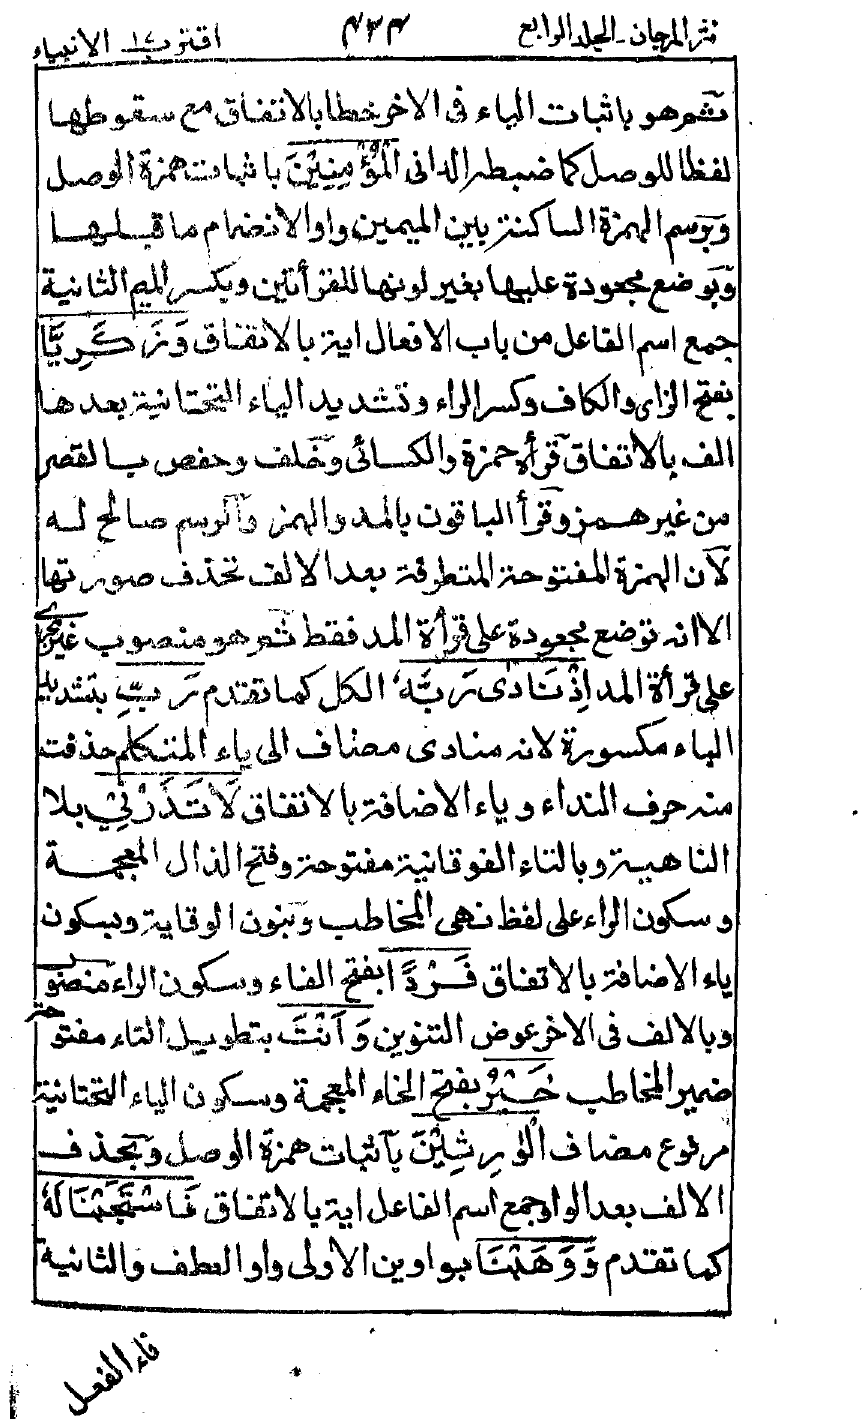 نثر المرجان۔الجلد الرابع ۴۳۴ اقترب ۱۷ الانبياء
ثم هو باثبات الياء فى الاخر خطا بالاتفاق مع سقوطها
لفظا للوصل كما ضبطه الدانى الْمُؤْمِنِيْنَ باثبات همزة الوصل
وبرسم الهمزة الساكنة بين الميمين واوا لانضمام ما قبلها
وبوضع مجعودة عليها بغير لونها للقرأتين وبكسر الميم الثانية
جمع اسم الفاعل من باب الافعال اية بالاتفاق وَزَكَرِيَّا
بفتح الزاى والكاف وكسر الراء وتشديد الياء التحتانية بعدها
الف بالاتفاق قرأه حمزة والكسائى وخلف وحفص بالقصر
من غير همز وقرأ الباقون بالمد والهمز والرسم صالح له
لان الهمزة المفتوحة المتطرفة بعد الالف تحذف صورتها
الا انه توضع مجعودة على قرأة المد فقط ثم هو منصوب غير مجرى
على قرأة المد اِذْ نَادٰى رَبَّهٗ الكل كما تقدم رَبِّ بتشديد
الباء مكسورة لانه منادى مضاف الى ياء المتكلم حذفت
منه حرف النداء وياء الاضافة بالاتفاق لَا تَذَرْنِيْ بلا
الناهية وبالتاء الفوقانية مفتوحة وفتح الذال المعجمة
وسكون الراء على لفظ نهى المخاطب وبنون الوقاية وبسكون
ياء الاضافة بالاتفاق فَرْدًا بفتح الفاء وسكون الراء منصوب
وبالالف فى الاخر عوض التنوين وَاَنْتَ بتطويل التاء مفتوحة
ضمير المخاطب خَيْرُ بفتح الخاء المعجمة وسكون الياء التحتانية
مرفوع مضاف الْوٰرِثِيْنَ باثبات همزة الوصل وبحذف
الالف بعد الواو جمع اسم الفاعل اية بالاتفاق فَاسْتَجَبْنَا لَهٗ
كما تقدم وَوَهَبْنَا بواوين الاولى واو العطف والثانية
فاء الفعل